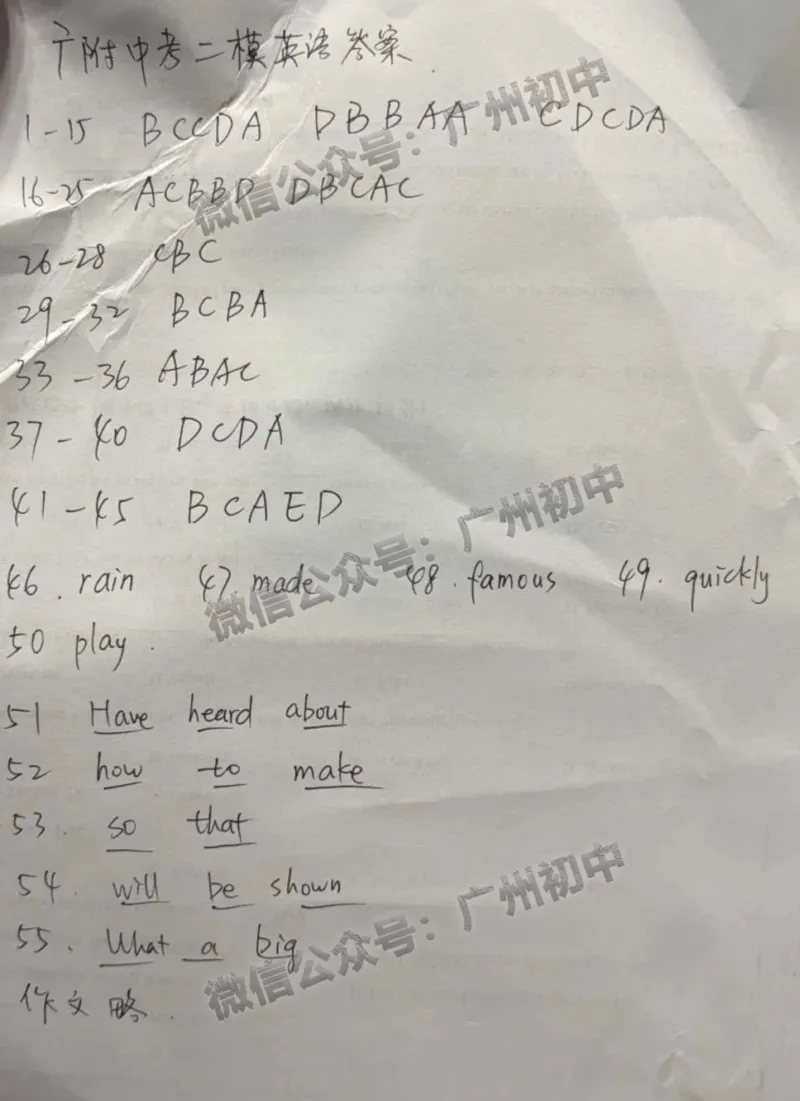 广附中考二模英语答案
1-15 BCCDA DBBAA CDCDA
16-25 ACBBD DBCAC
26-28 CBC
29-32 BCBA
33-36 ABAC
37-40 DCDA
41-45 BCAED
46. rain 47 made 48. famous 49. quickly
50 play.
51 Have heard about
52 how to make
53. so that
54. will be shown
55. What a big
作文略.
微信公众号：广州初中
微信公众号：广州初中
微信公众号：广州初中